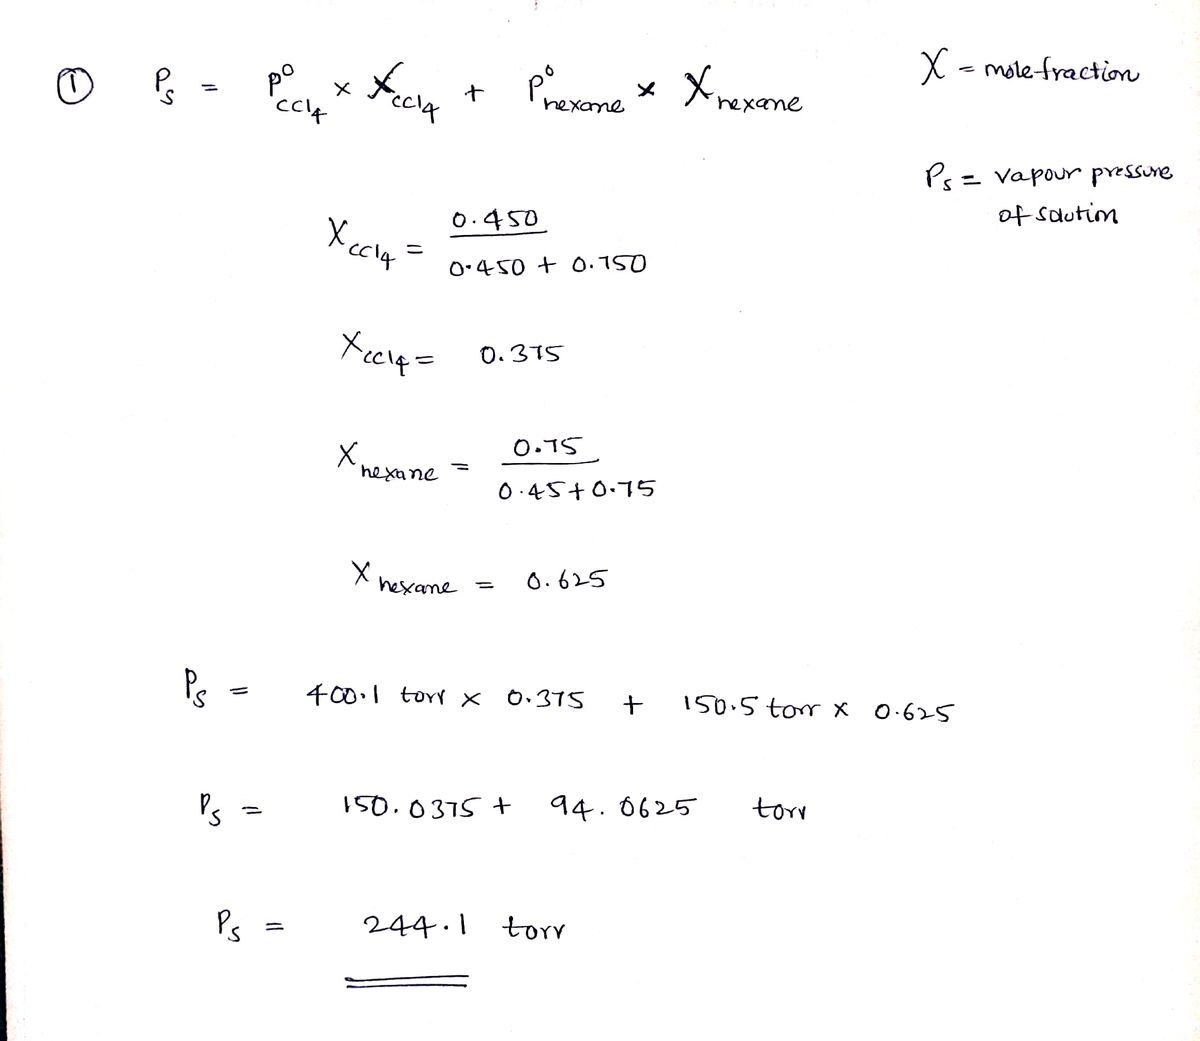 ① Pₛ = P⁰CCl₄ × XCCl₄ + P⁰hexane × Xhexane
X = mole fraction
Pₛ = vapour pressure
of solution
XCCl₄ = 0.450 / 0.450 + 0.750
XCCl₄ = 0.375
Xhexane = 0.75 / 0.45 + 0.75
Xhexane = 0.625
Pₛ = 400.1 torr × 0.375 + 150.5 torr × 0.625
Pₛ = 150.0375 + 94.0625 torr
Pₛ = 244.1 torr